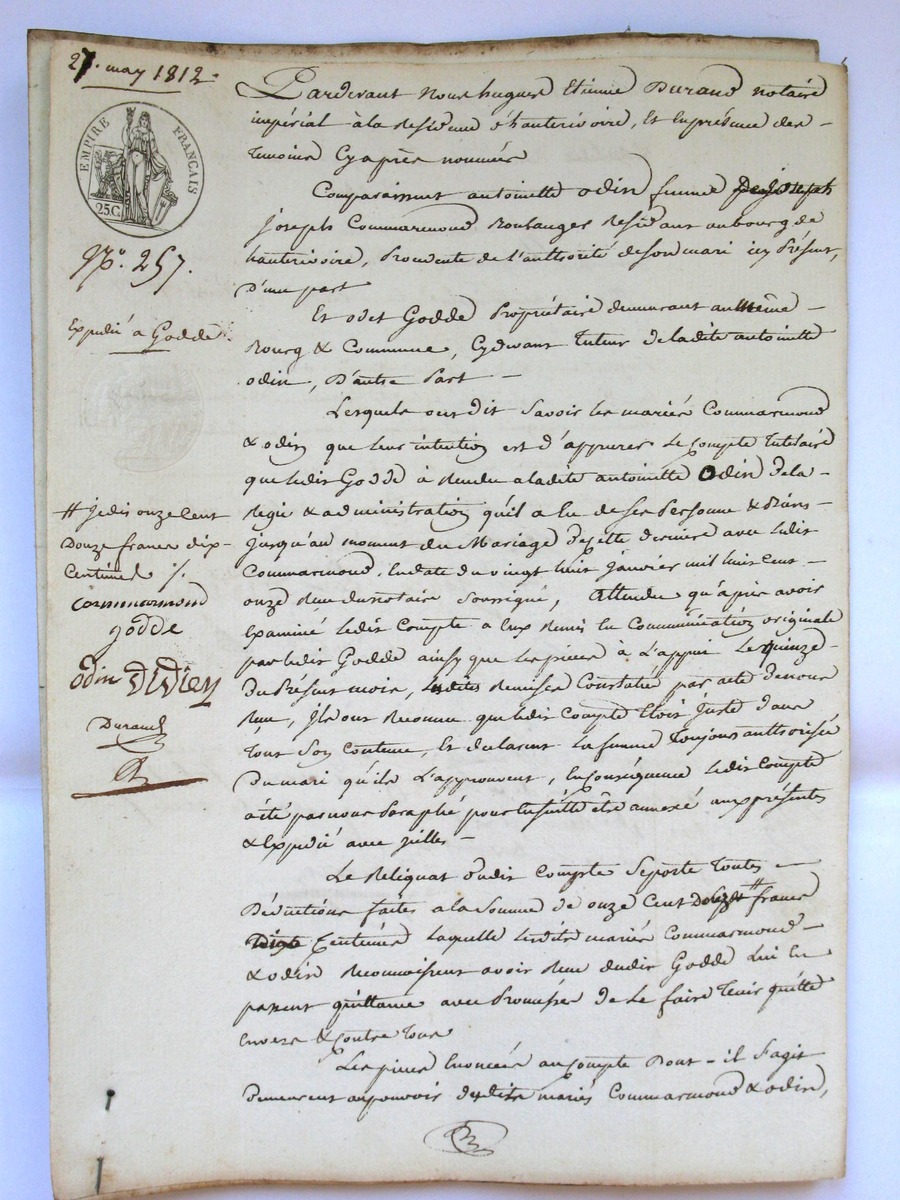 27. may 1812.
EMPIRE FRANÇAIS
25C.
No. 257.
Expedié a Godde
# Je dis onze Cent
Douze francs dix
Centimes /.
Commarmond
godde
odin didier
Durand
Pardevant Nous hugues Etienne Durand notaire
impérial à la Residence d'hauterivoire, Et En présence des
temoins Cy après nommés
Comparaissent antoinette odin femme de joseph
joseph Commarmond Boulanger Residant au bourg de
hauterivoire, Procedente de l'authorité de son mari icy Présent,
D'une part
Et odet Godde Propriétaire demeurant au même
Bourg & Commune, Cydevant Tuteur de la dite antoinette
odin, D'autre Part
Lesquels ont dit Savoir les mariés Commarmond
& odin que leur intention est d'appurer Le Compte Tutelaire
que ledit Godde à Rendu a ladite antoinette Odin de la
Regie & administration qu'il a Eu de ses Personne & Biens
jusqu'au moment du Mariage de cette derniere avec ledit
Commarmond, En date du vingt huit janvier mil huit Cent
onze Reçu du notaire Soussigné, Attendu qu'après avoir
Examiné ledit Compte a Eux Remis En Communication originale
par ledit Godde ainsy que les pieces à L'appui Le quinze
Du Présent mois, Remises Constatée par acte de nous
Reçu, ils ont Reconnu que ledit Compte Etoit juste dans
Tout Son Contenu, Et declarent La femme Toujours authorisée
Du mari qu'ils L'approuvent, En conséquence ledit Compte
a été par nous Paraphé pour Ensuitte être annexé aux présentes
& Expedié avec jcelles
Le Reliquat dudit Compte Se porte Toutes
Déductions faites a la Somme de onze Cent Douze # francs
Centimes Laquelle Lesdits mariés Commarmond
& odin Reconnoissent avoir Reçu dudit Godde Lui En
passent quittance avec Promesse de Le faire Tenir quitte
Envers & Contre Tous
Les pieces Enoncées au Compte Dont-il S'agit
Demeurent au pouvoir desdits mariés Commarmond & odin,